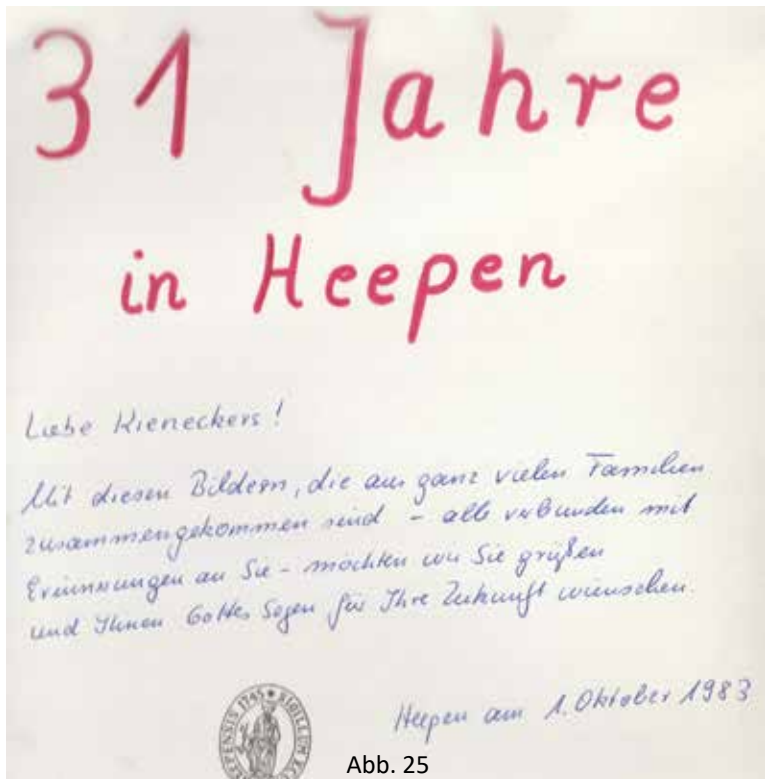 31 Jahre
in Heepen
Liebe Kieneckers!
Mit diesen Bildern, die aus ganz vielen Familien
zusammengekommen sind - alle verbunden mit
Erinnerungen an Sie - möchten wir Sie grüßen
und Ihnen Gottes Segen für Ihre Zukunft wünschen.
EPENSIS 1745 * SIGILLUM
Heepen am 1. Oktober 1983
Abb. 25